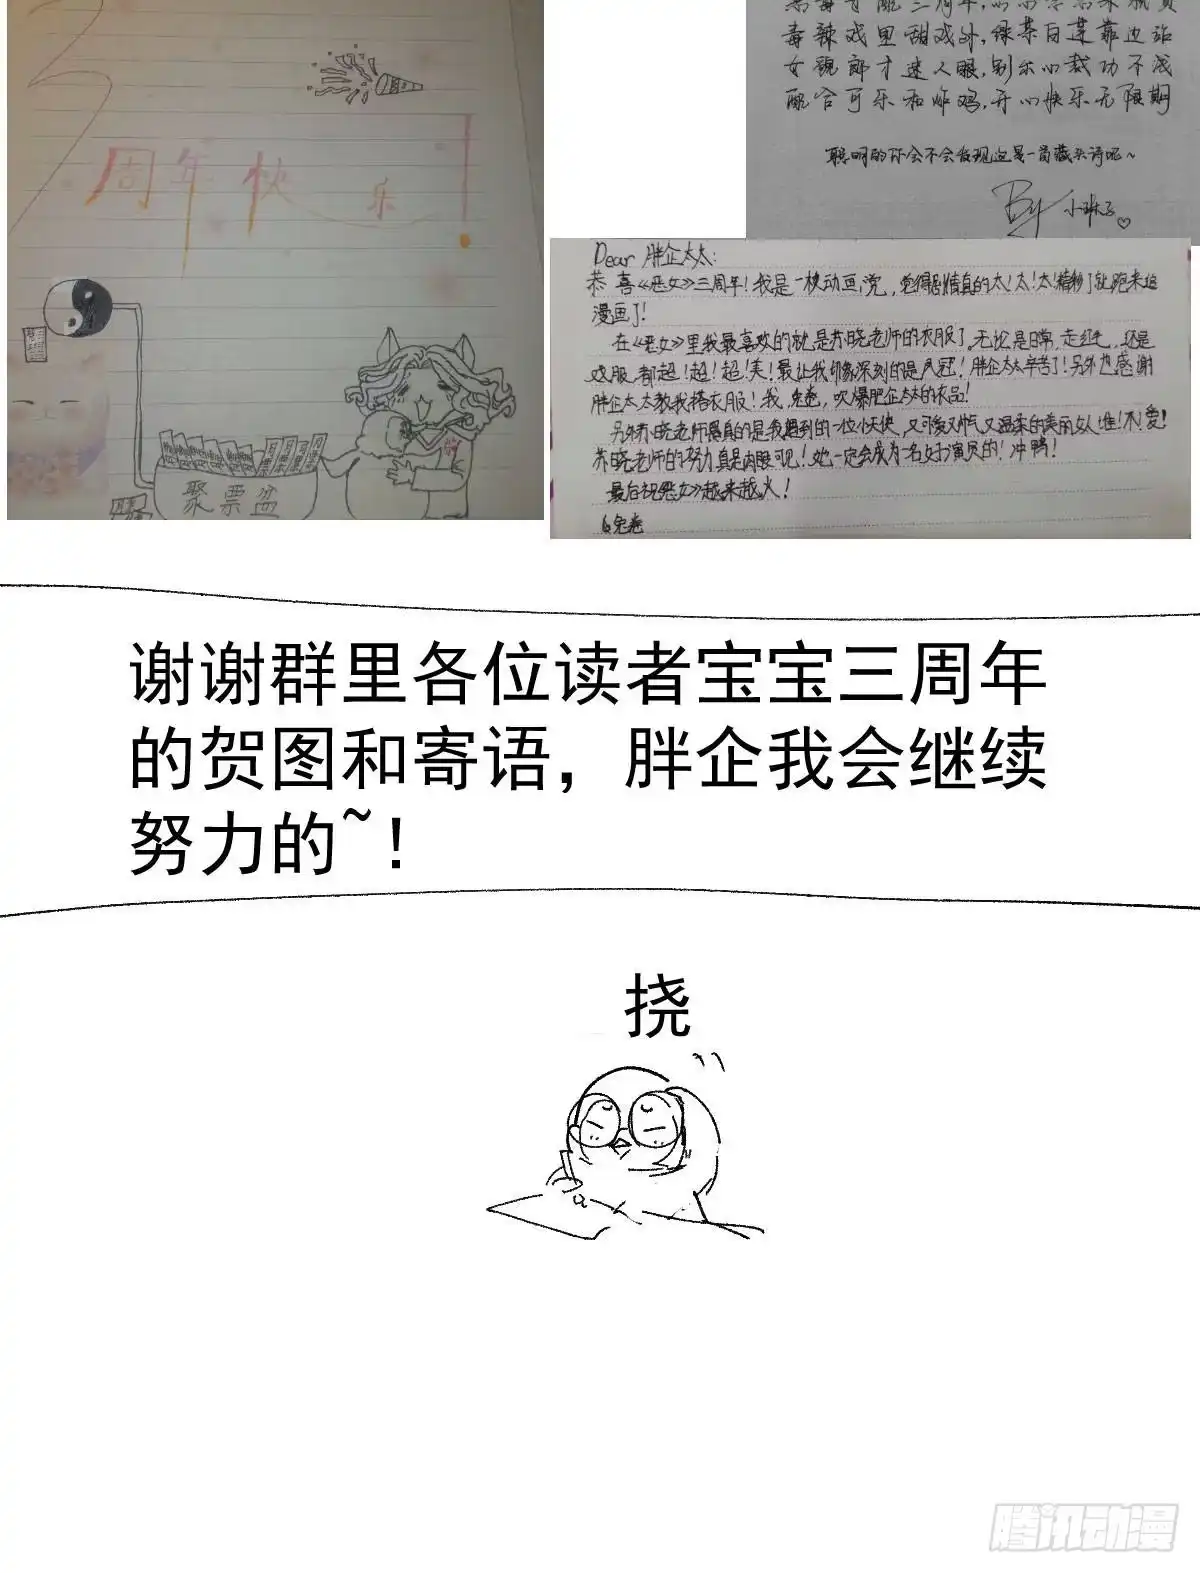 3
周年快乐!
聚票盆
毒辣戏里甜戏外,绿茶白莲靠边站
女貌郎才迷人眼,别尔心裁功不浅
配合可乐和炸鸡,开心快乐无限期
聪明的你会不会发现这是一首藏头诗呢~
By 小琳子♡
Dear 胖企太太:
恭喜《恶女》三周年!我是一枚动画党,觉得剧情真的太!太!太!精彩了就跑来追
漫画了!
在《恶女》里我最喜欢的就是苏晓老师的衣服了。无论是日常,走红毯,还是
戏服,都超!超!超!美!最让我印象深刻的是凤冠!胖企太太辛苦了!另外也感谢
胖企太太教我搭衣服!我,兔卷,吹爆胖企太太的衣品!
另外苏晓老师愿真的是我遇到的一位小天使,又可爱又帅气又温柔的美丽女人谁!不!爱!
苏晓老师的努力真是肉眼可见!她一定会成为一名好演员的!冲鸭!
最后祝《恶女》越来越火!
谢谢群里各位读者宝宝三周年
的贺图和寄语，胖企我会继续
努力的~!
挠
腾讯动漫